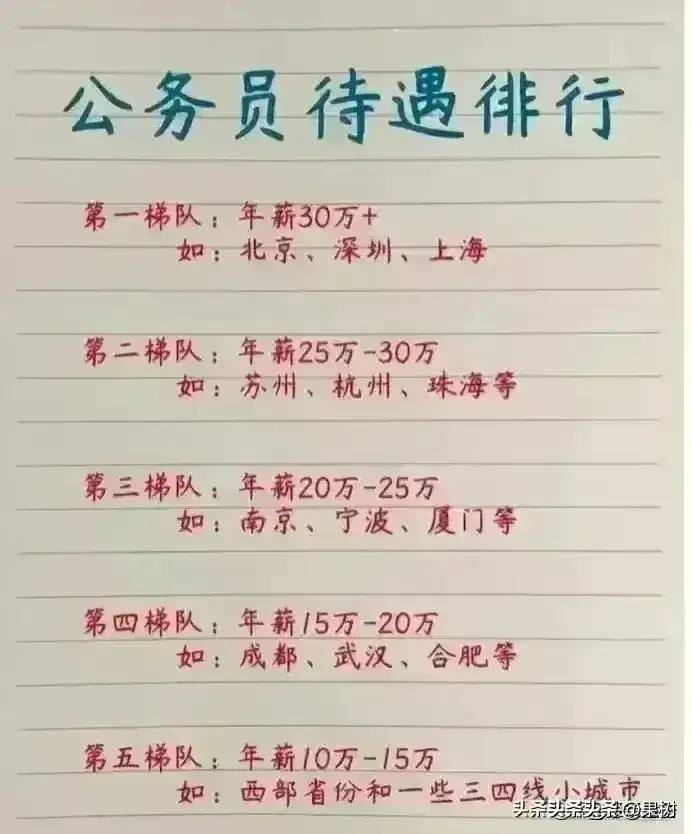 公务员待遇徘行
第一梯队：年薪30万+
如：北京、深圳、上海
第二梯队：年薪25万-30万
如：苏州、杭州、珠海等
第三梯队：年薪20万-25万
如：南京、宁波、厦门等
第四梯队：年薪15万-20万
如：成都、武汉、合肥等
第五梯队：年薪10万-15万
如：西部省份和一些三四线小城市
头条头条头条头条@果树